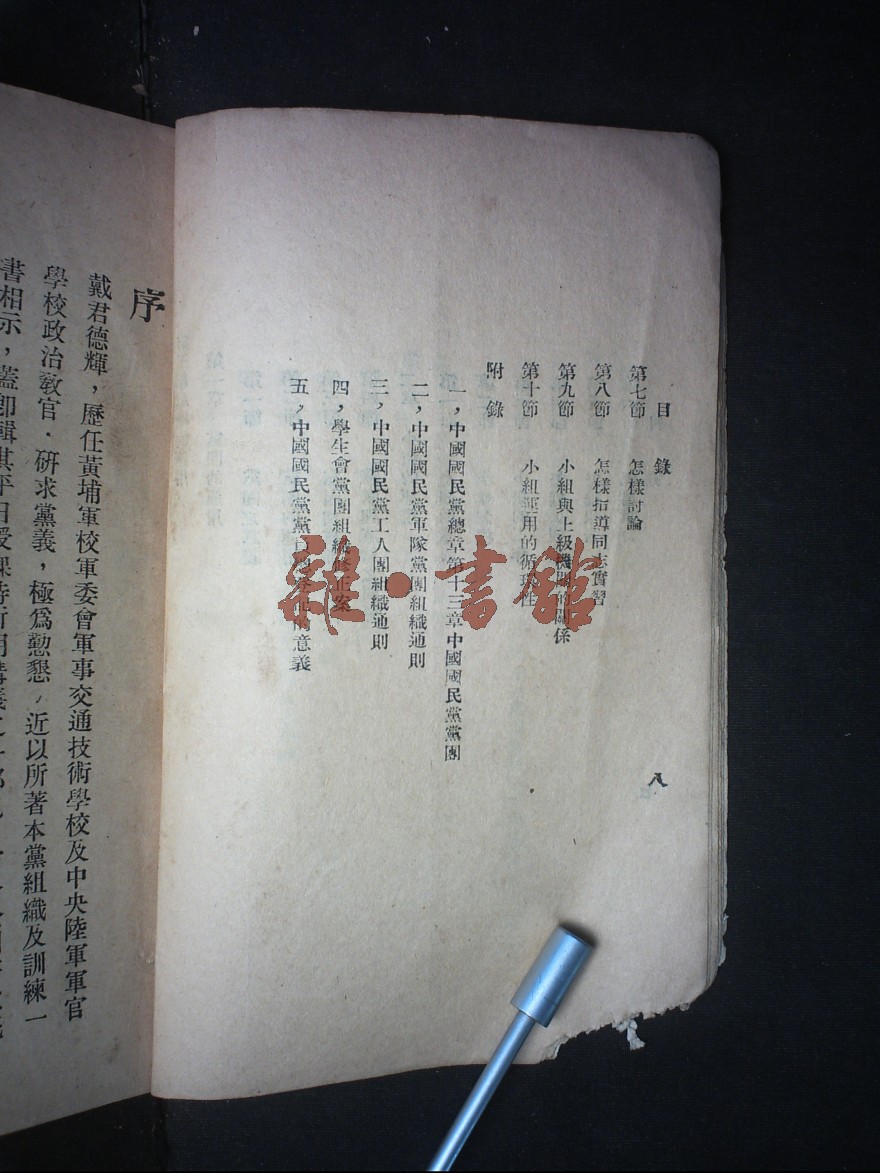 目錄
第七節 怎樣討論
第八節 怎樣指導同志實習
第九節 小組與上級機關的關係
第十節 小組運用的循環性
附錄
一，中國國民黨總章第十三章中國國民黨黨團
二，中國國民黨軍隊黨團組織通則
三，中國國民黨工人團組織通則
四，學生會黨團組織修正案
五，中國國民黨黨 的意義
八
序
戴君德輝，歷任黃埔軍校軍委會軍事交通技術學校及中央陸軍軍官
學校政治教官．研求黨義，極爲懃懇，近以所著本黨組織及訓練一
書相示，蓋卽輯其平日授課時所用講義之
雜·書館